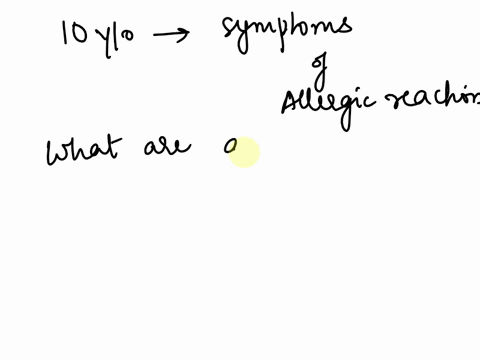 10 y/o → symptoms
of
Allergic reaction
What are a